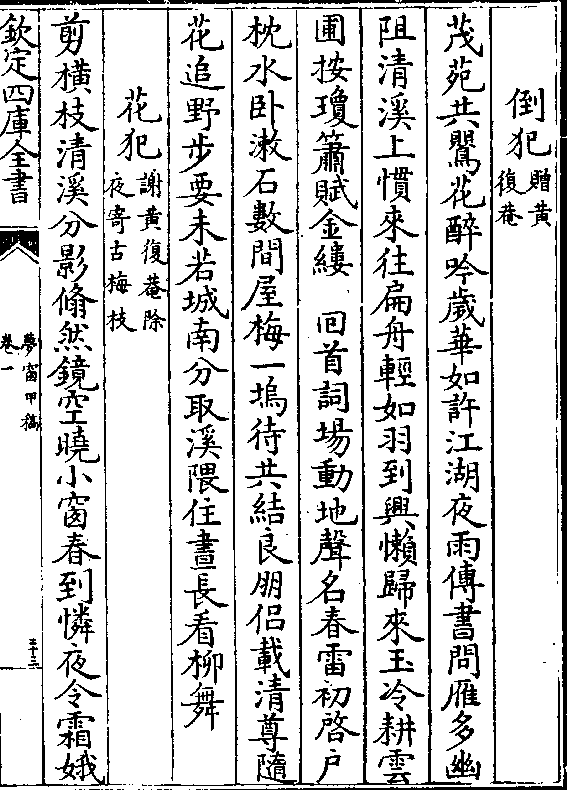 倒犯 贈黃
復菴
茂苑共鸎花醉吟歲華如許江湖夜雨傳書問雁多幽
阻清溪上慣來往扁舟輕如羽到興懶歸來玉冷耕雲
圃按瓊簫賦金縷 回首詞場動地聲名春雷初啓户
枕水卧漱石數間屋梅一塢待共結良朋侣載清尊隨
花追野步要未若城南分取溪隈住晝長看柳舞
花犯 謝黃復菴除
夜寄古梅枝
剪橫枝清溪分影翛然鏡空曉小窗春到憐夜令霜娥
欽定四庫全書
夢窗甲稿
卷一
三十三